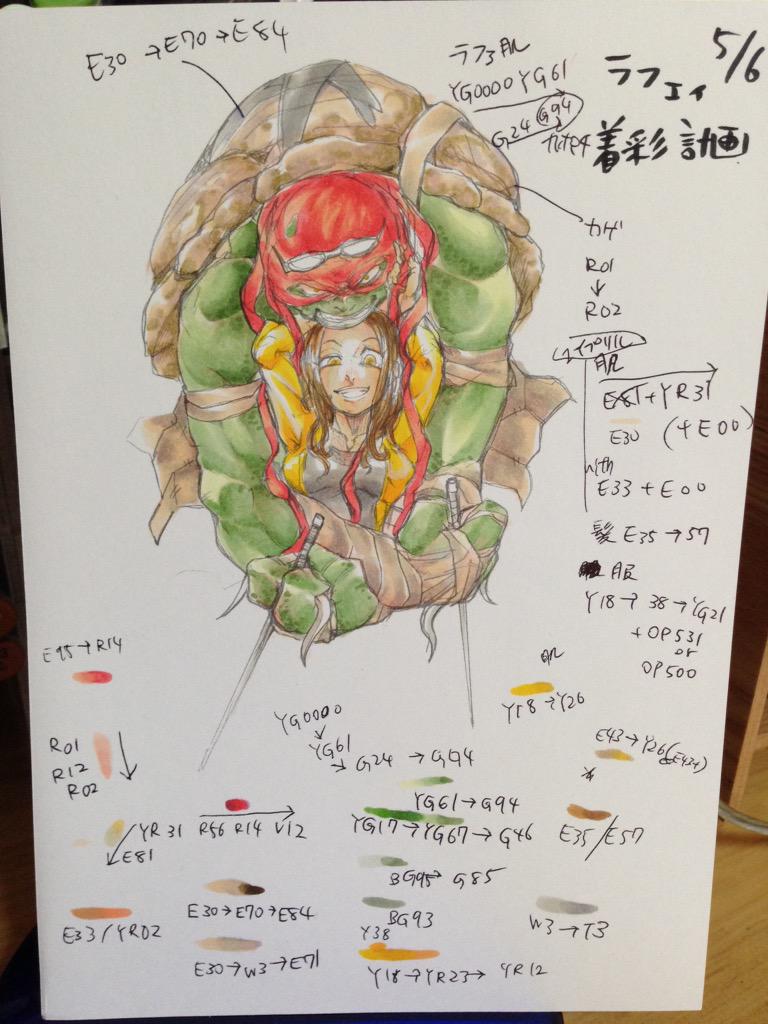 E30 → E70 → E84
ラフ3 肌
YG0000 YG61
G24 G94
5/6
ラフエイ
着彩計画
カゲ
R01
↓
R02
エイプリル
肌
E81+YR31
E30 (+E00)
with
E33 + E00
髪 E35 → 57
服
Y18 → 38 → YG21
+ OP531
or
OP500
E95 → R14
R01
R12
R02
YR31
↙ E81
E33/YR02
R56 R14 V12
E30→E70→E84
E30→W3→E71
YG0000
↘ YG61
↘ G24 → G94
YG61→G94
YG17→YG67→G46
BG95→G85
BG93
Y38
Y18→YR23→YR12
Y18→Y26
E43→Y26(E434)
E35/E57
W3→T3